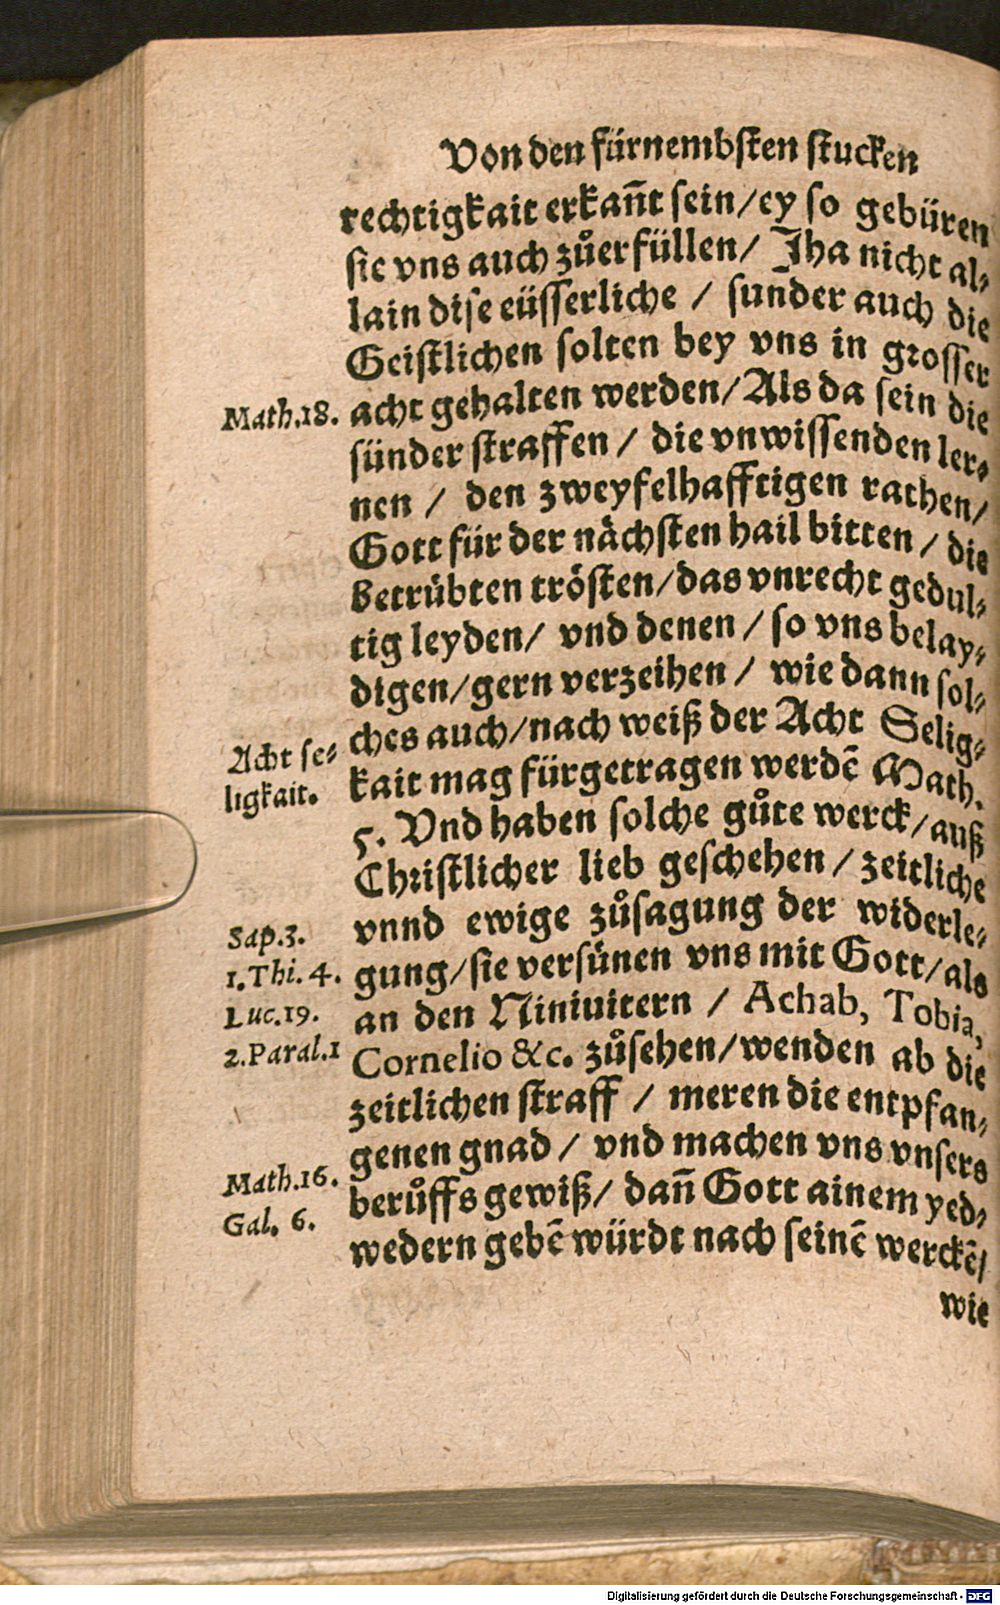 Von den fürnembsten stucken
rechtigkait erkañt sein/ey so gebüren
sie vns auch zůerfüllen/ Jha nicht al⸗
lain dise eüsserliche / sunder auch die
Geistlichen solten bey vns in grosser
Math.18. acht gehalten werden/Als da sein die
sünder straffen / die vnwissenden ler⸗
nen / den zweyfelhafftigen rathen/
Gott für der nächsten hail bitten / die
Betrübten trösten/das vnrecht gedul⸗
tig leyden/ vnd denen / so vns belay⸗
digen/gern verzeihen / wie dann sol⸗
Acht se⸗ ches auch/nach weiß der Acht Selig⸗
ligkait. kait mag fürgetragen werdē Math.
5. Vnd haben solche gůte werck/auß
Christlicher lieb geschehen / zeitliche
Sap.3. vnnd ewige zůsagung der widerle⸗
1.Thi. 4. gung/sie versünen vns mit Gott/als
Luc.19. an den Niniuitern / Achab, Tobia,
2.Paral.1 Cornelio &c. zůsehen/wenden ab die
zeitlichen straff / meren die entpfan⸗
Math.16. genen gnad / vnd machen vns vnsers
Gal. 6. berůffs gewiß/ dañ Gott ainem yed⸗
wedern gebē würdt nach seinē werckē/
wie
Digitalisierung gefördert durch die Deutsche Forschungsgemeinschaft - DFG